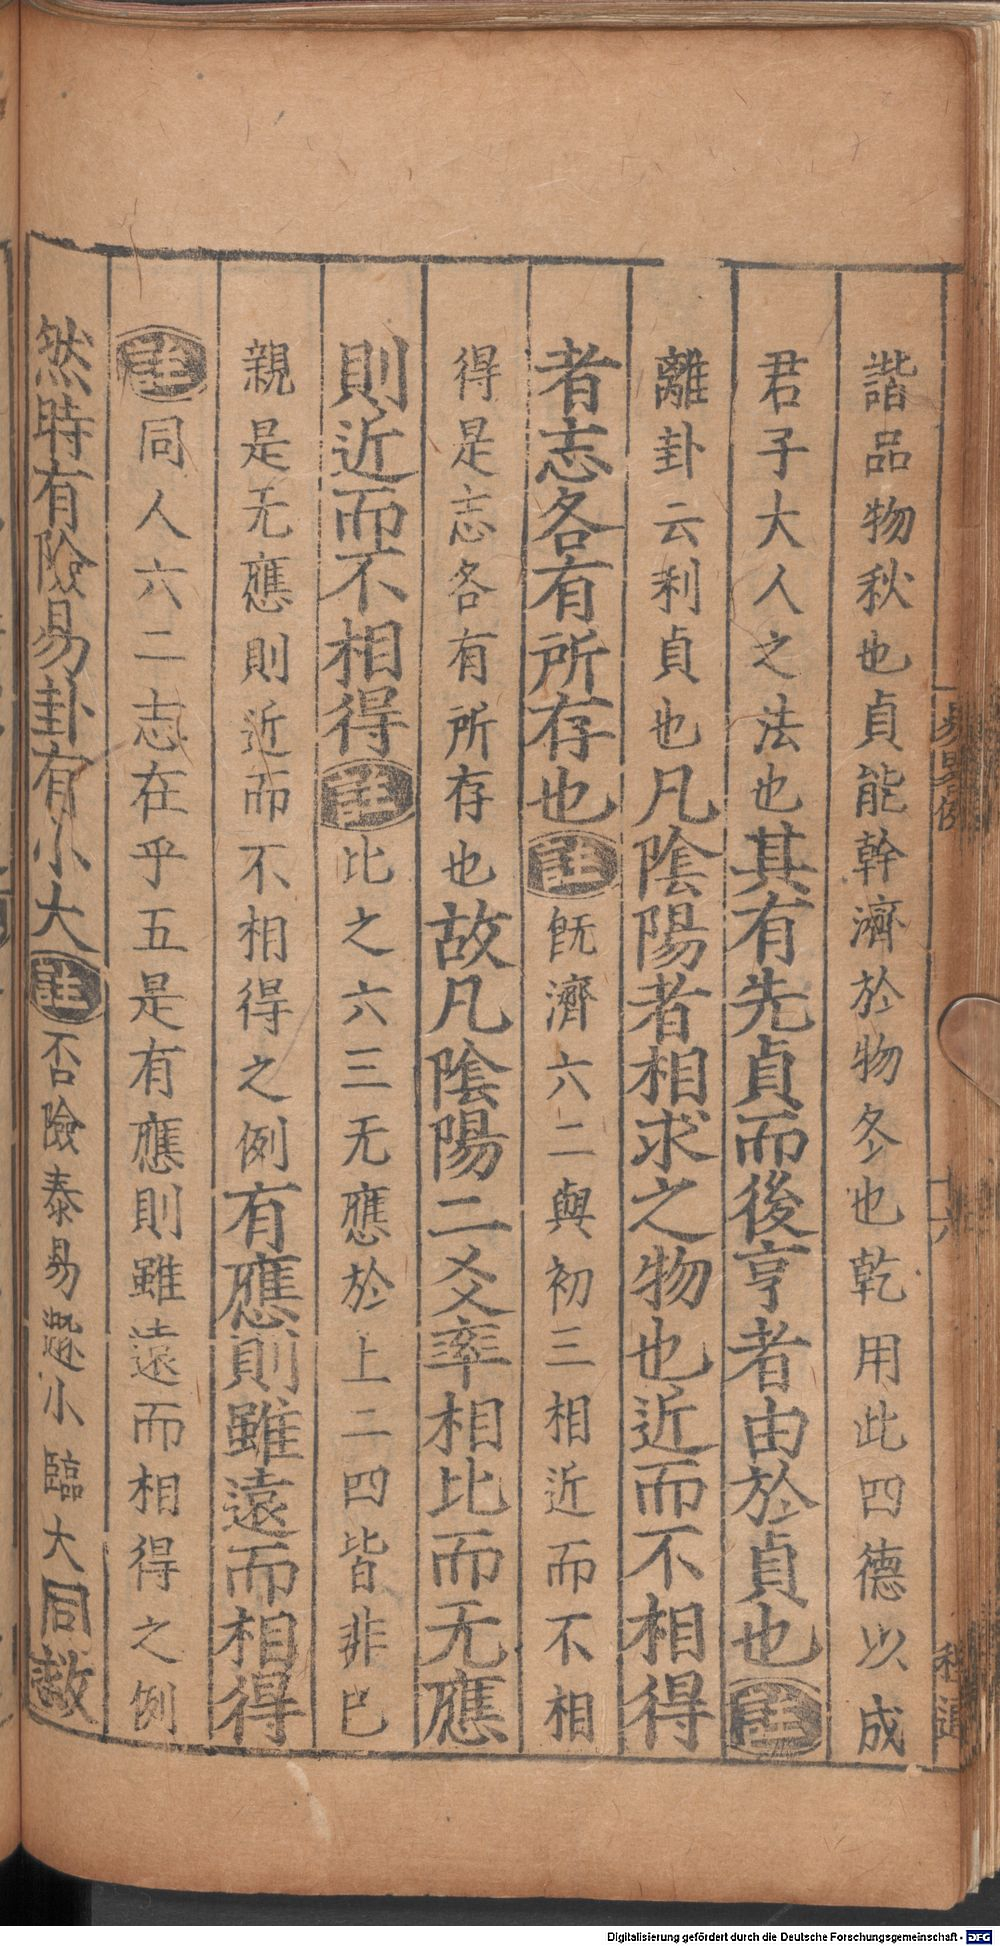 諧品物秋也貞能幹濟於物冬也乾用此四德以成
君子大人之法也其有先貞而後亨者由於貞也註
離卦云利貞也凡陰陽者相求之物也近而不相得
者志各有所存也註旣濟六二與初三相近而不相
得是志各有所存也故凡陰陽二爻率相比而无應
則近而不相得註比之六三无應於上二四皆非已
親是无應則近而不相得之例有應則雖遠而相得
註同人六二志在乎五是有應則雖遠而相得之例
然時有險易卦有小大註否險泰易遯小臨大同救
易畧例
十六
Digitalisierung gefördert durch die Deutsche Forschungsgemeinschaft - DFG